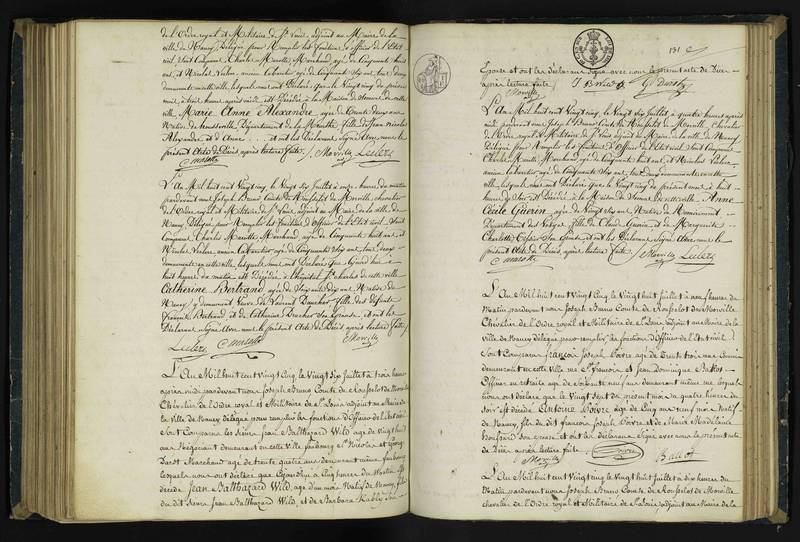 de l'Ordre royal et Militaire de St Louis, adjoint au Maire de la
ville de Nancy, Délégué pour Remplir les fonctions d'officier de l'Etat
civil, Sont Comparus Charles Marotte, Marchand, agé de Cinquante huit
ans, et Nicolas Leclerc, ancien agé de Cinquante Sept ans, tous deux
demeurants en cette ville, lesquels nous ont Déclaré que le Vingt Cinq du présent
mois, à trois heures après midi est Décédée à la Maison de de cette
ville, Marie Anne Alexandre agée de Trente deux ans
Native de Département de la Meurthe, fille de Nicolas
Alexandre et d'Anne et ont les Déclarants Signé Avec nous le
présent Acte de Décès après lecture faite. Morville Leclerc
C marotte
L'An Mil huit cent Vingt cinq, le Vingt Six Juillet à onze heures du matin
pardevant nous Joseph Bruno Comte de Rousselot de Morville, chevalier
de l'Ordre royal et Militaire de St Louis, adjoint au Maire de la ville de
Nancy Délégué pour Remplir les fonctions d'Officier de l'Etat civil, Sont
Comparus Charles Marotte, Marchand, agé de Cinquante huit ans, et
Nicolas Leclerc, ancien agé de Cinquante Sept ans, tous deux
demeurants en cette ville, lesquels nous ont Déclaré que à
huit heures du matin est Décédée à l'hôpital St Charles de cette ville
Catherine Bertrand agée de Soixante dix ans, Native de
Nancy y demeurant Veuve de Laurent Drucker fille des défunts
François Bertrand et de Catherine Drucker Son épouse, et ont les
Déclarants Signé Avec nous le présent Acte de Décès après lecture faite
Leclerc C marotte Morville
L'An Mil huit cent Vingt Cinq, le Vingt Six Juillet à trois heures
après midi pardevant nous Joseph Bruno Comte de Rousselot de Morville
Chevalier de l'Ordre royal et Militaire de St Louis adjoint au Maire de
la Ville de Nancy délégué pour remplir les fonctions d'Officier de l'Etat civil
Sont Comparus les Sieurs Jean Balthazard Wild, agé de Vingt huit
ans Négociant demeurant en cette Ville faubourg St Nicolas et
Marchand agé de trente quatre ans demeurant même faubourg
lesquels nous ont déclaré que Cejourd'hui à Cinq heures du Matin est
décédé Jean Balthazard Wild, agé d'un mois Natif de Nancy, fils
du dit Sieur Jean Balthazard Wild, et de Barbara Son
131
Epouse et ont les déclarants Signé avec nous le présent acte de Décès
après lecture faite. J B Wild
Morville
L'An Mil huit cent Vingt cinq, le Vingt Six Juillet, à quatre heures après
midi pardevant nous Joseph Bruno Comte de Rousselot de Morville, Chevalier
de l'Ordre royal et Militaire de St Louis, adjoint au Maire de la ville de Nancy
Délégué pour Remplir les fonctions d'Officier de l'Etat civil, Sont Comparus
Charles Marotte Marchand, agé de Cinquante huit ans, et Nicolas Leclerc,
ancien agé de Cinquante Sept ans, tous deux demeurants en cette
ville, lesquels nous ont Déclaré que le Vingt cinq du présent mois à huit
heures du Soir est Décédée à la Maison de de cette ville, Anne
Cécile Guerin, agée de Vingt Sept ans Native de
Département des Vosges, fille de Claude Guerin et de Marguerite
Charlotte Son épouse, et ont les Déclarants Signé Avec nous le
présent Acte de Décès, après lecture faite. Morville Leclerc
C marotte
L'An Mil huit cent Vingt Cinq, le Vingt huit Juillet à neuf heures du
Matin pardevant nous Joseph Bruno Comte de Rousselot de Morville
Chevalier de l'Ordre royal et Militaire de St Louis adjoint au Maire de la
ville de Nancy délégué pour remplir les fonctions d'Officier de l'Etat civil
Sont Comparus François Joseph agé de trente trois ans Commis
demeurant en cette Ville rue St François et Jean Dominique Ballot
Officier en retraite agé de Soixante neuf ans demeurant même rue lesquels
nous ont déclaré que le Vingt Sept du présent mois à quatre heures du
soir est décédé Antoine agé de Cinq ans neuf mois Natif
de Nancy, fils du dit François Joseph et de Marie Madelaine
Son épouse et ont les déclarants Signé avec nous le présent acte
de Décès après lecture faite.
Morville Ballot
L'An Mil huit cent Vingt Cinq le Vingt huit Juillet à dix heures du
Matin pardevant nous Joseph Bruno Comte de Rousselot de Morville
chevalier de l'Ordre royal et Militaire de St Louis adjoint au Maire de la